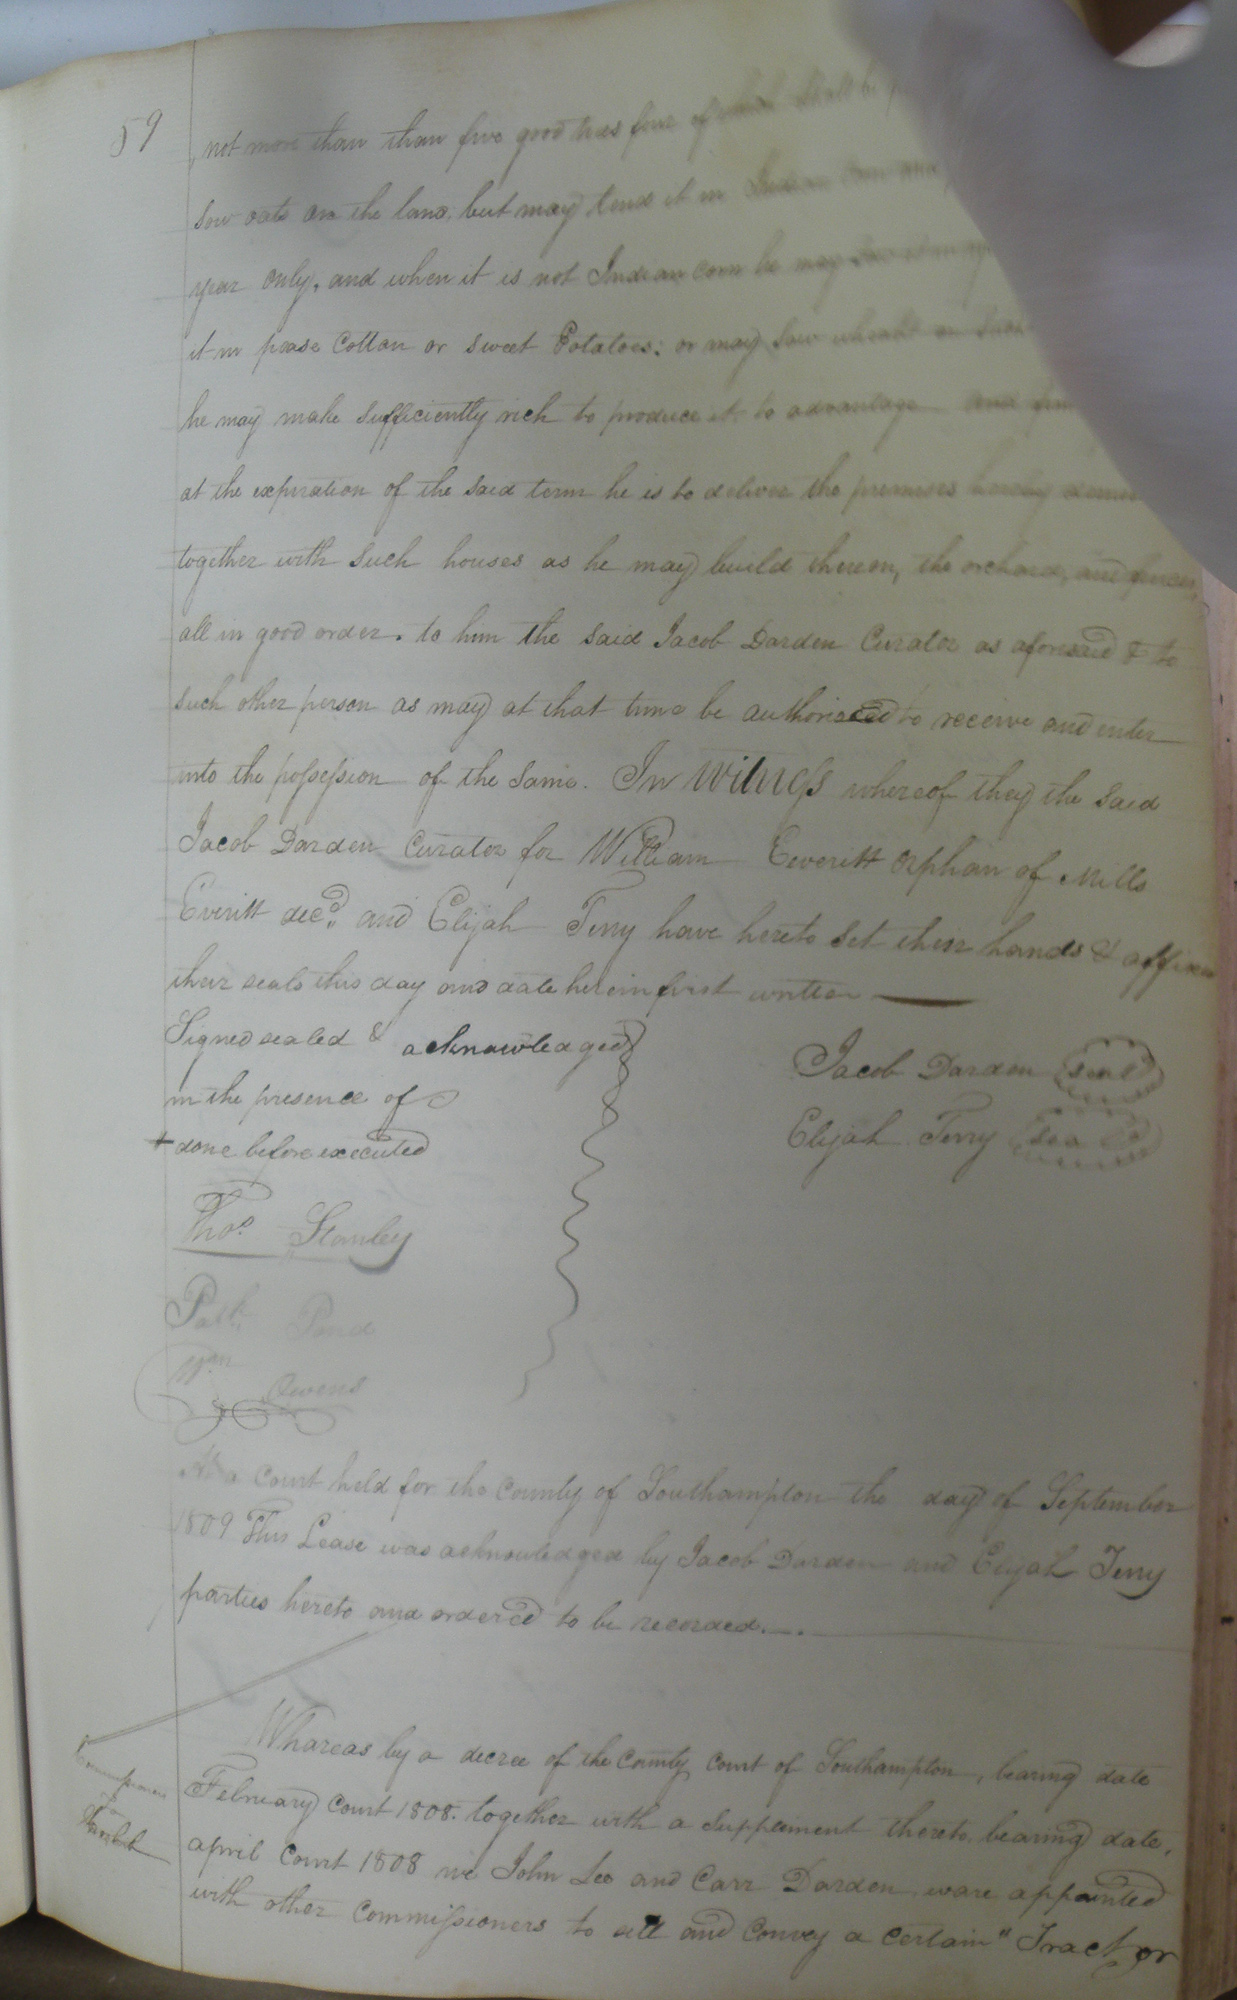 59
not more than than five good trees four of which shall be
sow oats on the land, but may tend it in Indian Corn
year only, and when it is not Indian corn he may
it in pease Cotton or Sweet Potatoes; or may sow wheat on such
he may make sufficiently rich to produce it to advantage and
at the expiration of the said term he is to deliver the premises hereby
together with such houses as he may build thereon, the orchard, and fences,
all in good order. to him the said Jacob Darden Curator as aforesaid & to
such other person as may at that time be authorised to receive and enter
into the possession of the same. In Witness whereof they the said
Jacob Darden Curator for William Everitt Orphan of Mills
Everitt decd. and Elijah Terry have hereto set their hands & affixed
their seals this day and date herein first written
Signed sealed & acknowledged
in the presence of
+ done before executed
Jacob Darden seal
Elijah Terry seal
Thos. Stanley
Pond
Wm Owens
At a Court held for the County of Southampton the day of September
1809 This Lease was acknowledged by Jacob Darden and Elijah Terry
parties hereto and ordered to be recorded.
Whareas by a decree of the County Court of Southampton, bearing date
February Court 1808. together with a Supplement thereto, bearing date,
april Court 1808 we John Lee and Carr Darden ware appointed
with other Commissioners to sell and Convey a Certain " Tract or
Commissioners